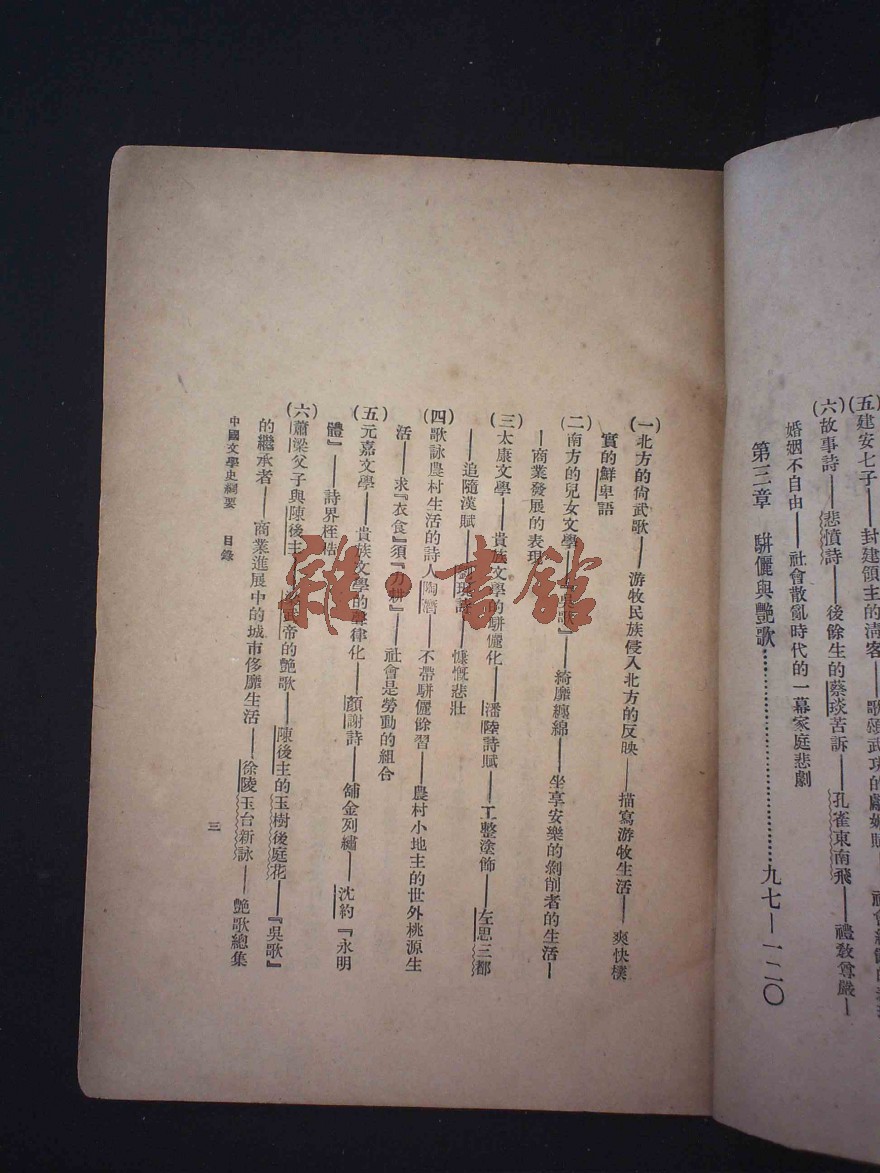 (五)建安七子——封建領主的清客——歌頌武功的
(六)故事詩——悲憤詩——後餘生的蔡琰苦訴——孔雀東南飛——禮敎尊嚴—
婚姻不自由——社會散亂時代的一幕家庭悲劇
第三章 駢儷與艷歌……………………九七—一二〇
(一)北方的尙武歌——游牧民族侵入北方的反映——描寫游牧生活——爽快樸
實的鮮卑語
(二)南方的兒女文學——『吳歌』——綺靡纏綿——坐享安樂的剝削者的生活—
—商業發展的表現
(三)太康文學——貴族文學的駢儷化——潘陸詩賦——工整塗飾——左思三都
——追隨漢賦——劉琨詩——慷慨悲壯
(四)歌詠農村生活的詩人陶潛——不帶駢儷餘習——農村小地主的世外桃源生
活——求『衣食』須『力耕』——社會是勞動的組合
(五)元嘉文學——貴族文學的聲律化——顏謝詩——舖金列繡——沈約『永明
體』——詩界桎梏
(六)蕭梁父子與陳後主——梁武帝的艷歌——陳後主的玉樹後庭花——『吳歌』
的繼承者——商業進展中的城市侈靡生活——徐陵玉台新詠——艷歌總集
中國文學史綱要 目錄
三
雜·書館